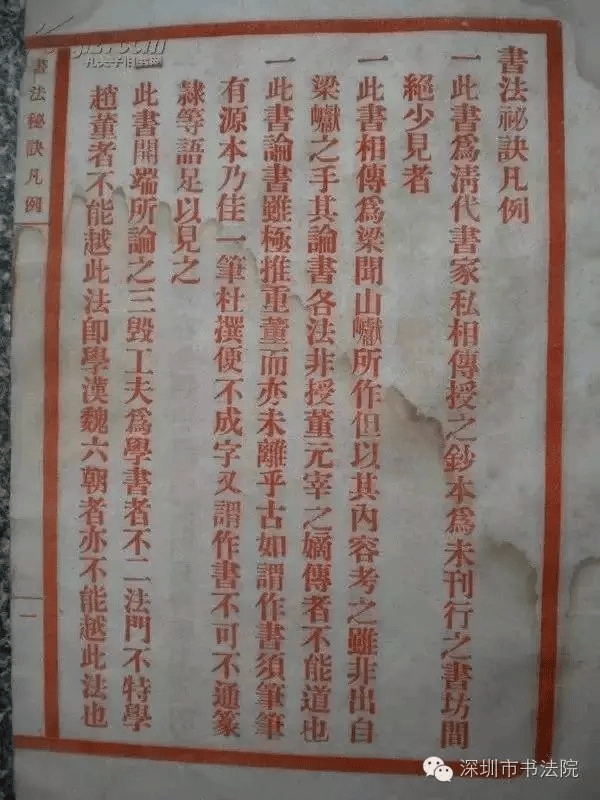 書法祕訣凡例
一此書爲清代書家私相傳授之鈔本爲未刊行之書坊間
絕少見者
一此書相傳爲梁聞山巘所作但以其內容考之雖非出自
梁巘之手其論書各法非授董元宰之嫡傳者不能道也
一此書論書雖極推重董而亦未離乎古如謂作書須筆筆
有源本乃佳一筆杜撰便不成字又謂作書不可不通篆
隸等語足以見之
一此書開端所論之三毀工夫爲學書者不二法門不特學
趙董者不能越此法卽學漢魏六朝者亦不能越此法也
書法秘訣凡例
一
深圳市书法院